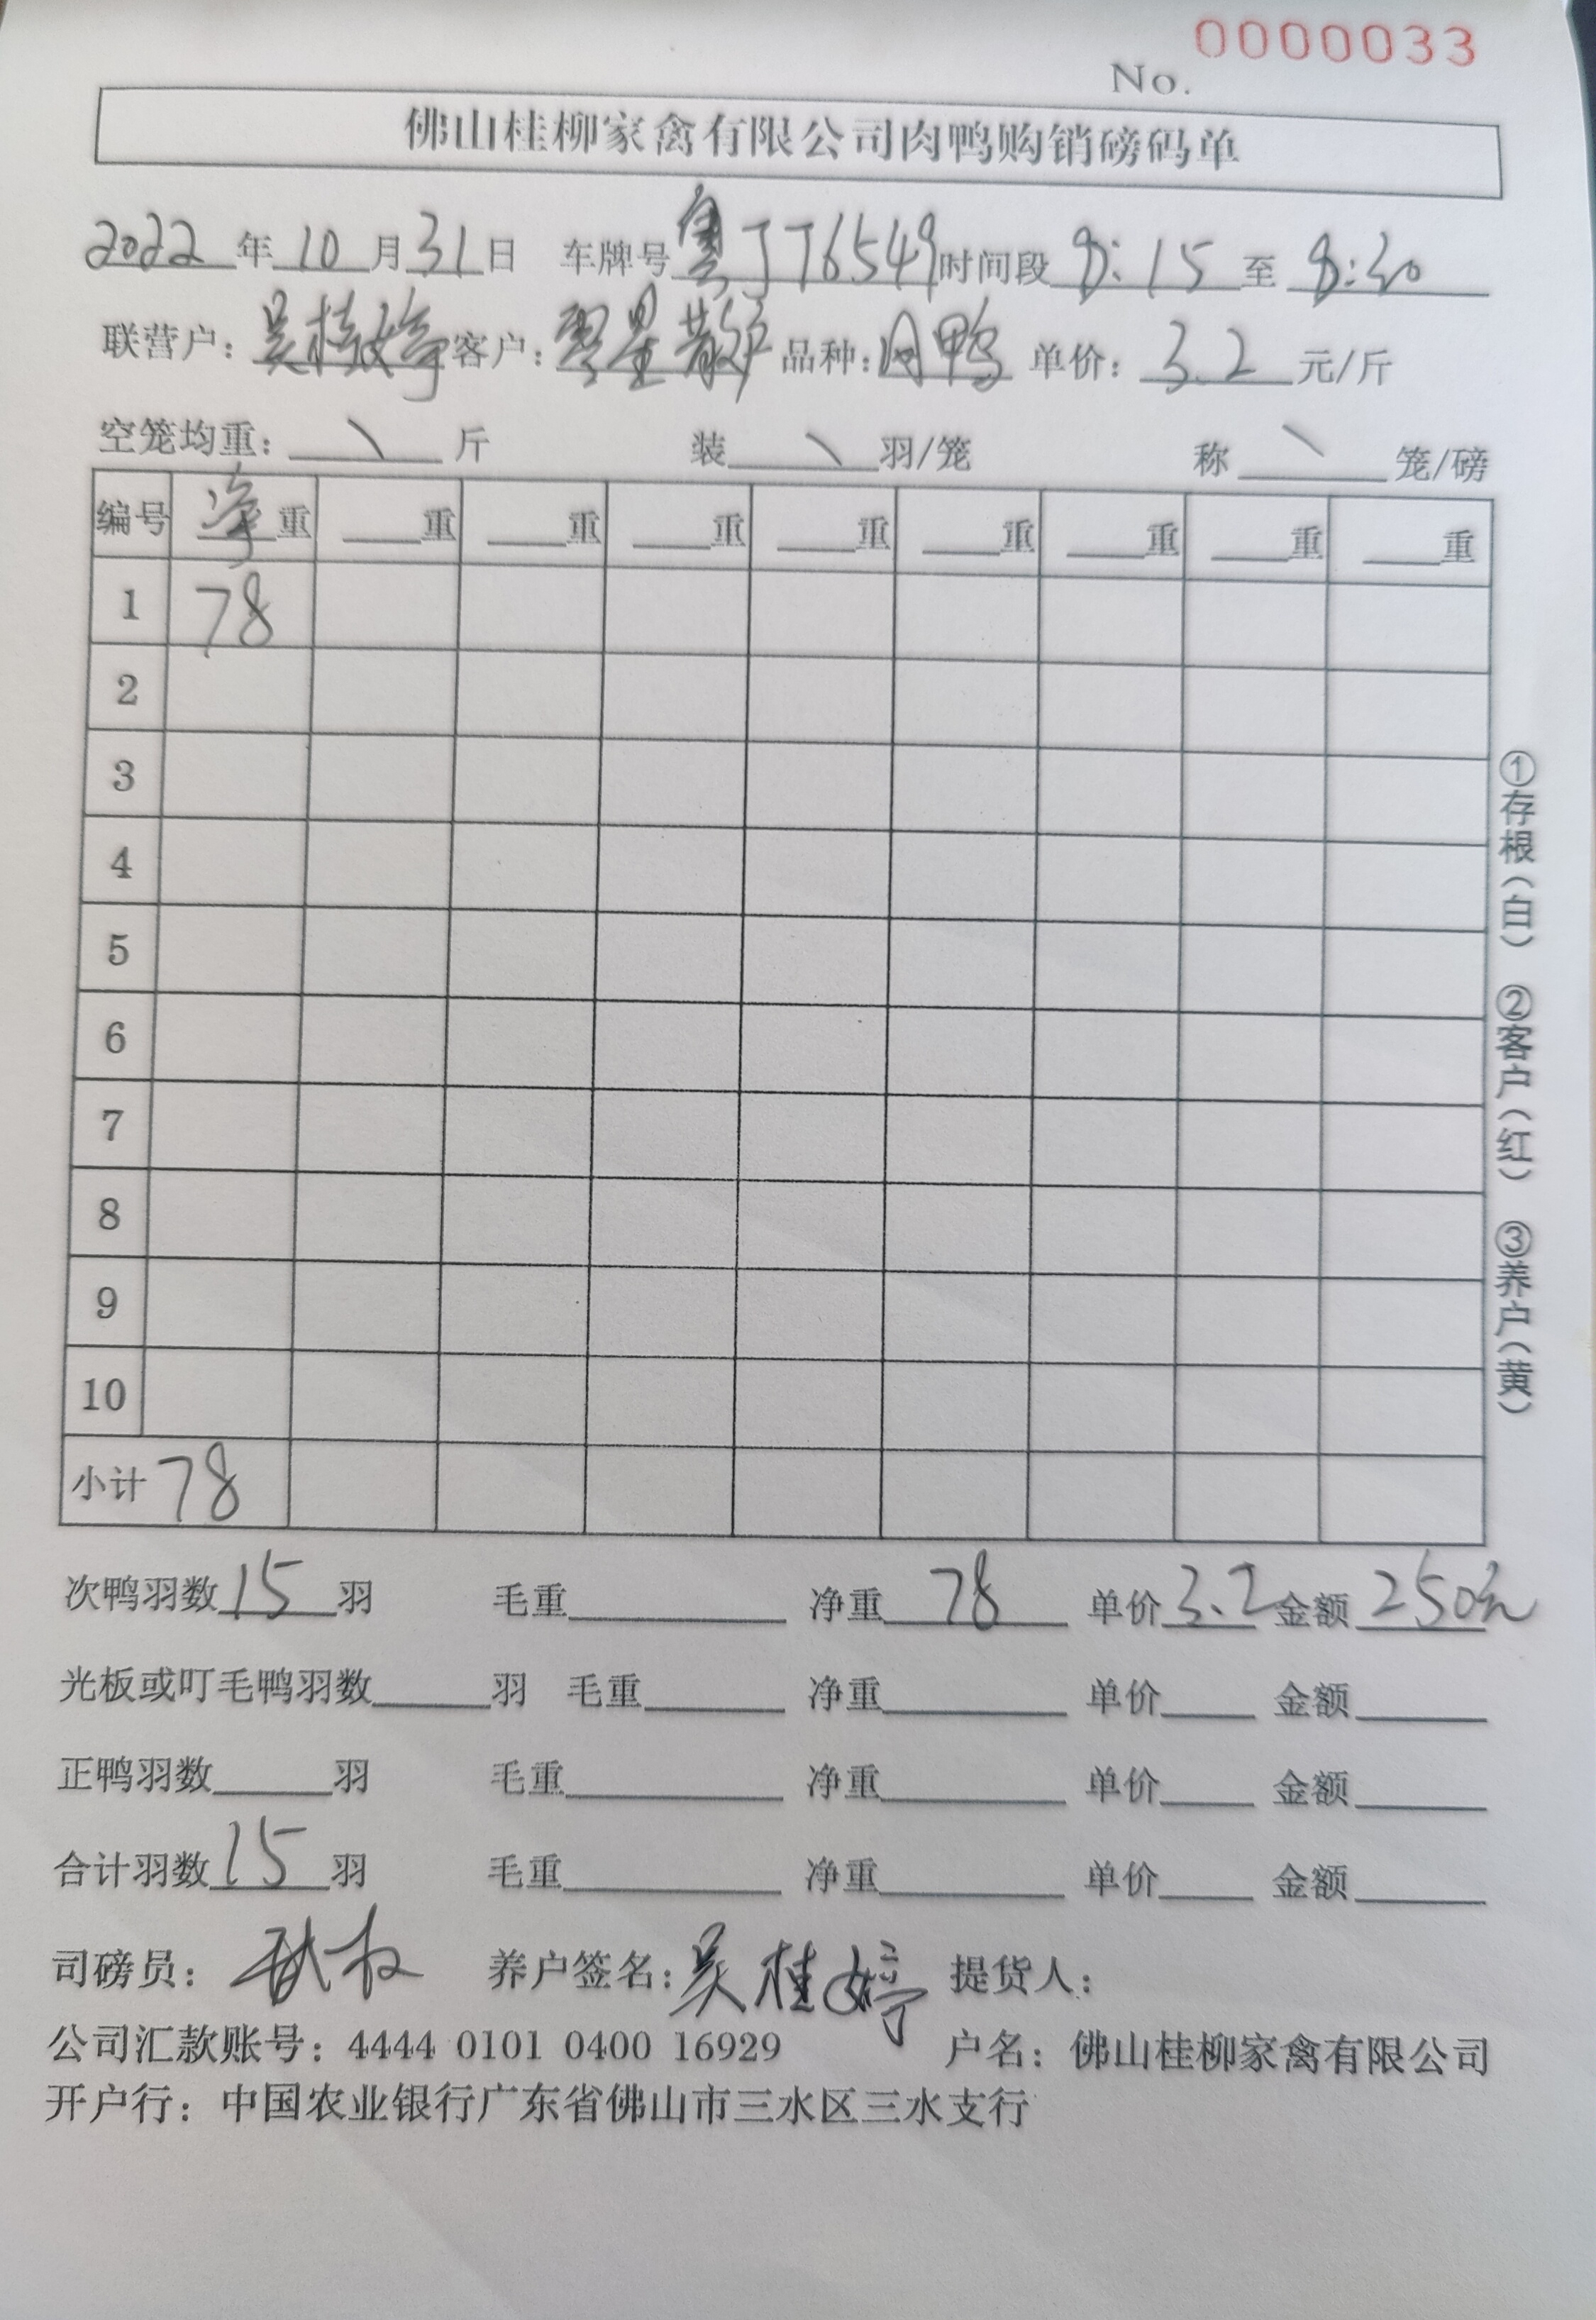 No. 0000033
佛山桂柳家禽有限公司肉鸭购销磅码单
2022年10月31日 车牌号粤JT6549时间段8:15至8:30
联营户:吴桂婷客户:零星散户品种:肉鸭 单价:3.2元/斤
空笼均重:\斤 装\羽/笼 称\笼/磅
编号 净重 重 重 重 重 重 重 重 重
1 78
2
3
4
5
6
7
8
9
10
小计 78
次鸭羽数15羽 毛重 净重78 单价3.2金额250元
光板或叮毛鸭羽数 羽 毛重 净重 单价 金额
正鸭羽数 羽 毛重 净重 单价 金额
合计羽数15羽 毛重 净重 单价 金额
司磅员: 养户签名:吴桂婷 提货人:
公司汇款账号:4444 0101 0400 16929 户名:佛山桂柳家禽有限公司
开户行:中国农业银行广东省佛山市三水区三水支行
①存根(白) ②客户(红) ③养户(黄)